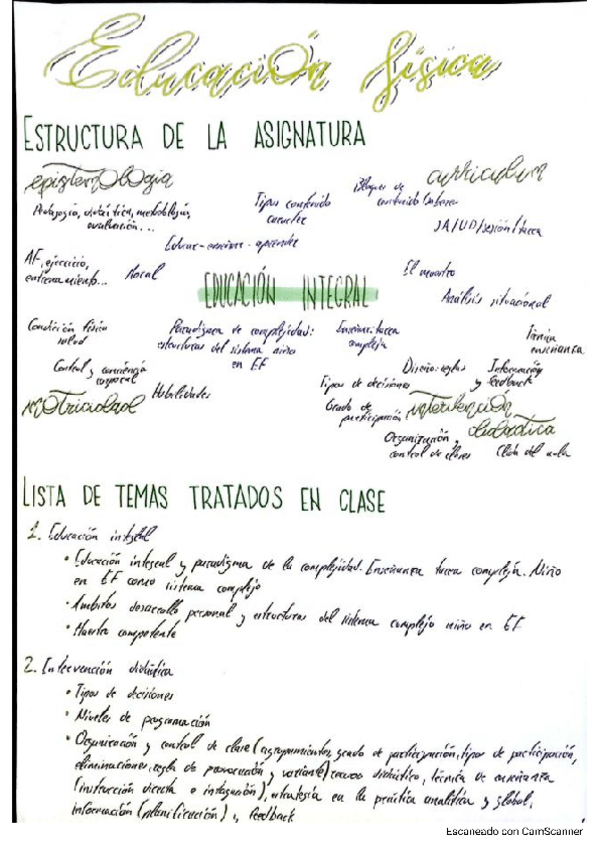 Educación física
ESTRUCTURA DE LA ASIGNATURA
epistemología
curriculum
Pedagogía, didáctica, metodología,
evaluación...
Tipos contenido
carácter
Bloques de
contenido
JA/UD/sesión/tarea
Educar-enseñar-aprender
AF, ejercicio,
entrenamiento...
Rural
EDUCACIÓN INTEGRAL
El maestro
Análisis situacional
Condición física
salud
Paradigma de complejidad:
estructuras del sistema niño
en EF
Enseñanza: tarea
compleja
Técnica
enseñanza
Control y conciencia
corporal
Habilidades
Diseño: reglas
Información
y feedback
Tipos de decisiones
motricidad
Grado de
participación
intervención
didáctica
Organización y
control de clases
Clima del aula
LISTA DE TEMAS TRATADOS EN CLASE
1. Educación integral
• Educación integral y paradigma de la complejidad. Enseñanza tarea compleja. Niño
en EF como sistema complejo
• Ámbitos desarrollo personal y estructuras del sistema complejo niño en EF
• Maestro competente
2. Intervención didáctica
• Tipos de decisiones
• Niveles de programación
• Organización y control de clase (agrupamientos, grado de participación, tipos de participación,
eliminaciones, regla de provocación y variante) recurso didáctico, técnica de enseñanza
(instrucción directa o indagación), estrategia en la práctica analítica y global,
información (planificación) y feedback
Escaneado con CamScanner